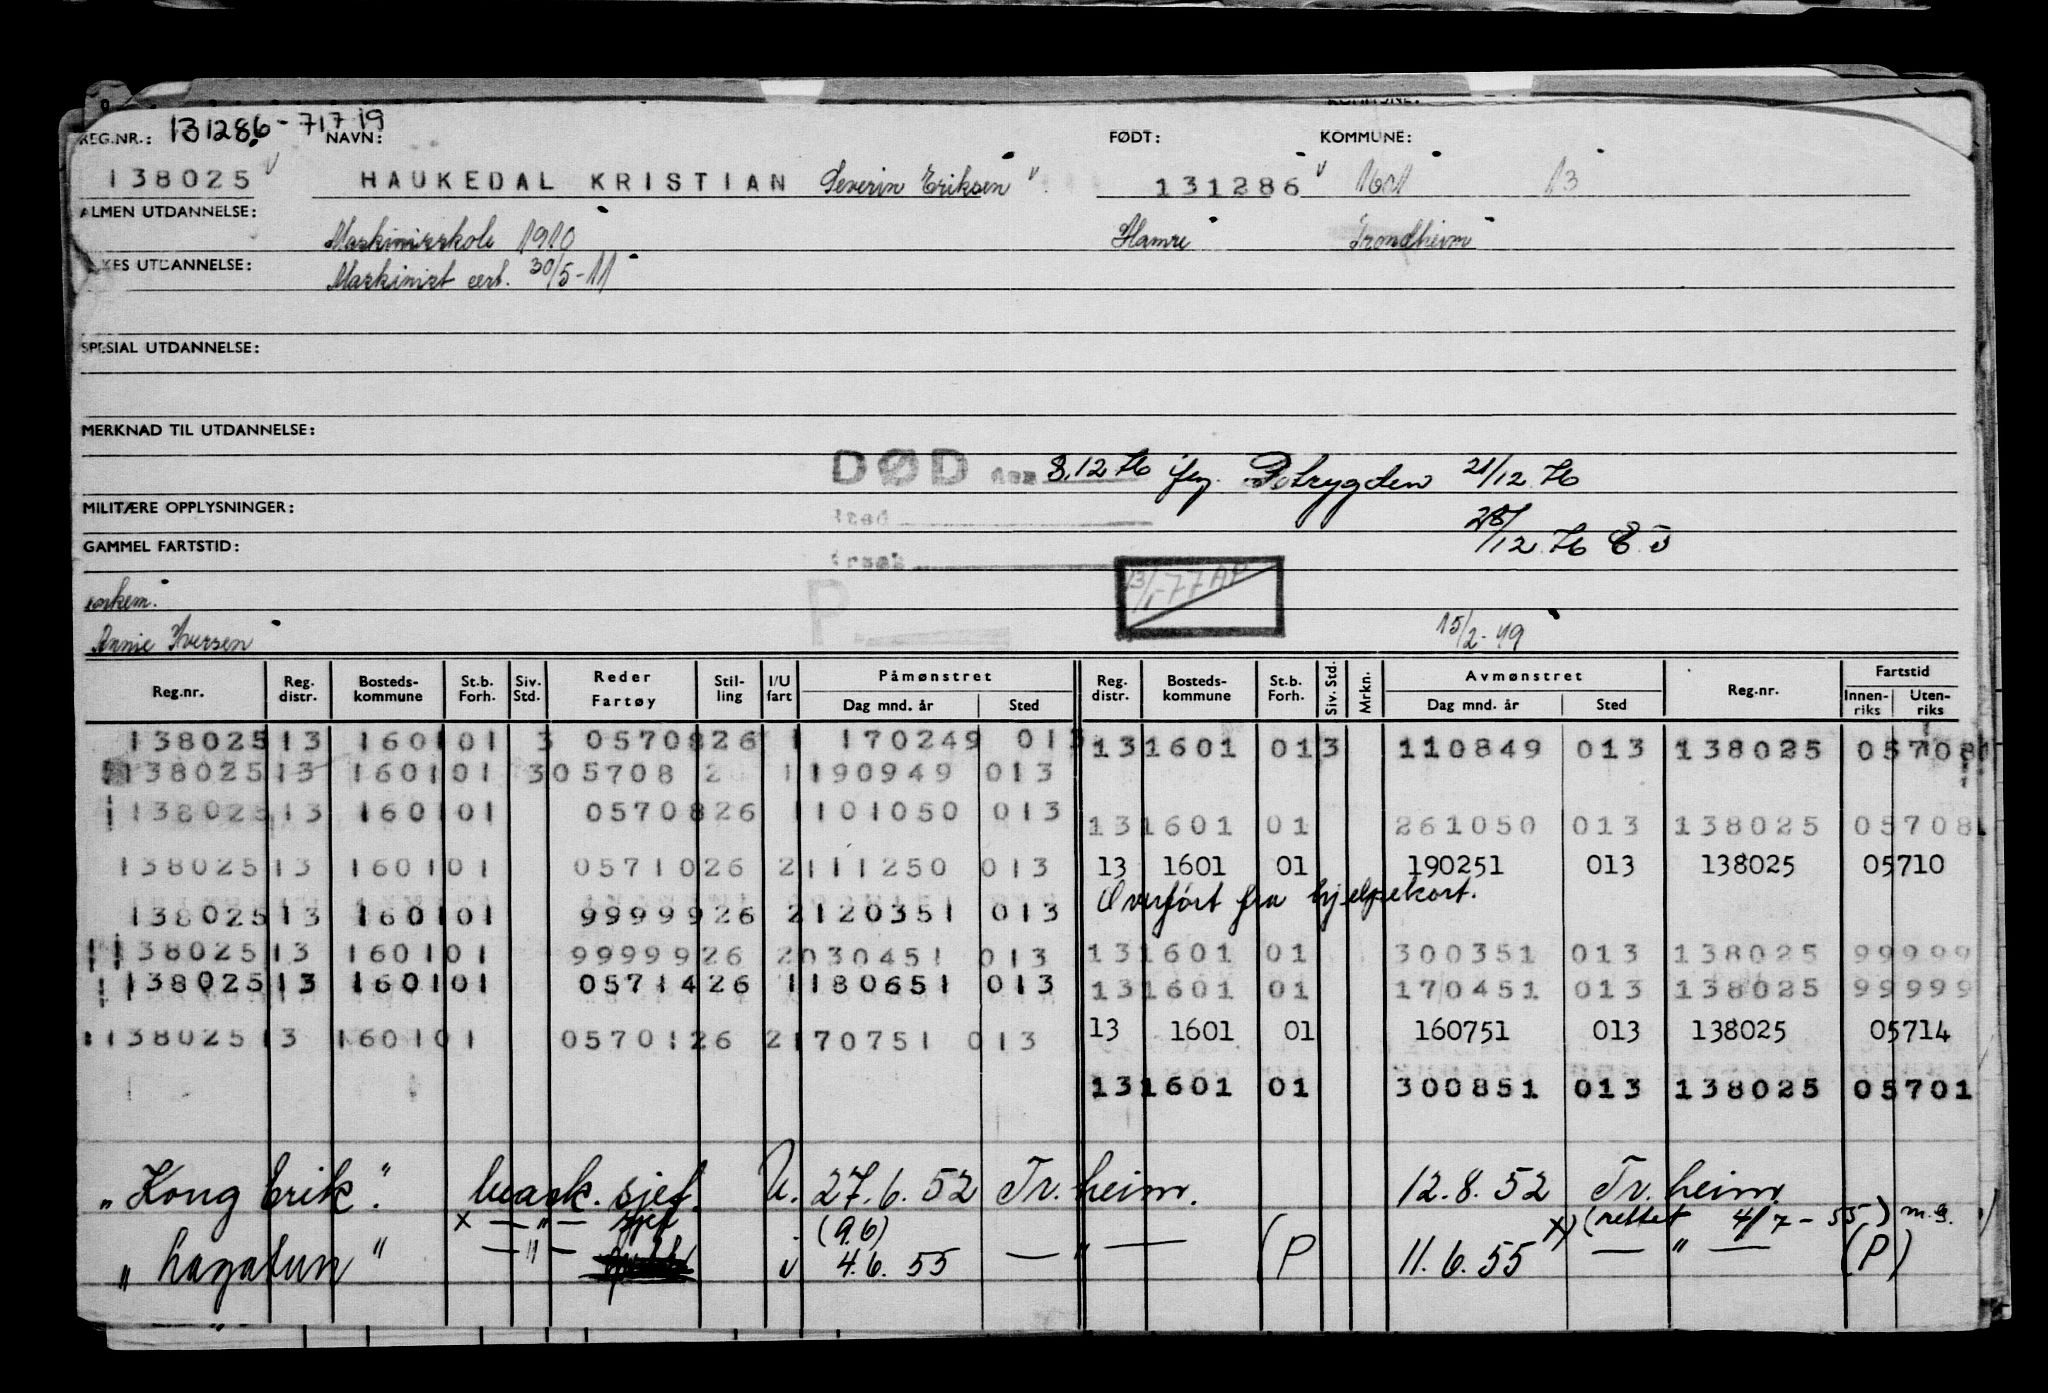 REG.NR.: 131286-71719 NAVN: FØDT: KOMMUNE:
138025 HAUKEDAL KRISTIAN Severin Eriksen 131286 1601 13
ALMEN UTDANNELSE: Maskinistskole 1910 Hamre Trondheim
UTDANNELSE: Maskinist cert. 30/5-11
SPESIAL UTDANNELSE:
MERKNAD TIL UTDANNELSE:
DØD den 8.12.76 21/12.76
MILITÆRE OPPLYSNINGER: 28/12.76
GAMMEL FARTSTID:
P
Annie Iversen 15/2-49
Reg.nr. Reg. distr. Bosteds-kommune St.b. Forh. Siv. Std. Reder Fartøy Stil-ling I/U fart Påmønstret Dag mnd. år Sted Reg. distr. Bosteds-kommune St.b. Forh. Siv. Std. Mrkn. Avmønstret Dag mnd. år Sted Reg.nr. Fartstid Innen-riks Uten-riks
138025 13 1601 01 3 05708 26 1 170249 013 13 1601 01 3 110849 013 138025 05708
138025 13 1601 01 3 05708 2 1 190949 013
138025 13 1601 01 05708 26 1 101050 013
13 1601 01 261050 013 138025 05708
138025 13 1601 01 05710 26 2 111250 013 13 1601 01 190251 013 138025 05710
138025 13 1601 01 99999 26 2 120351 013 Overført fra hjelpekort.
138025 13 1601 01 99999 26 2 030451 013 13 1601 01 300351 013 138025 99999
138025 13 1601 01 05714 26 1 180651 013 13 1601 01 170451 013 138025 99999
138025 13 1601 01 05701 26 2 170751 013 13 1601 01 160751 013 138025 05714
13 1601 01 300851 013 138025 05701
"Kong Erik". mask. sjef. U. 27.6.52 Tr.heim. 12.8.52 Tr.heim.
x — " — sjef (9.6) x) (rettet 4/7-55)
"Lagatun" — " — 4.6.55 — " — (P 11.6.55 — " — (P)